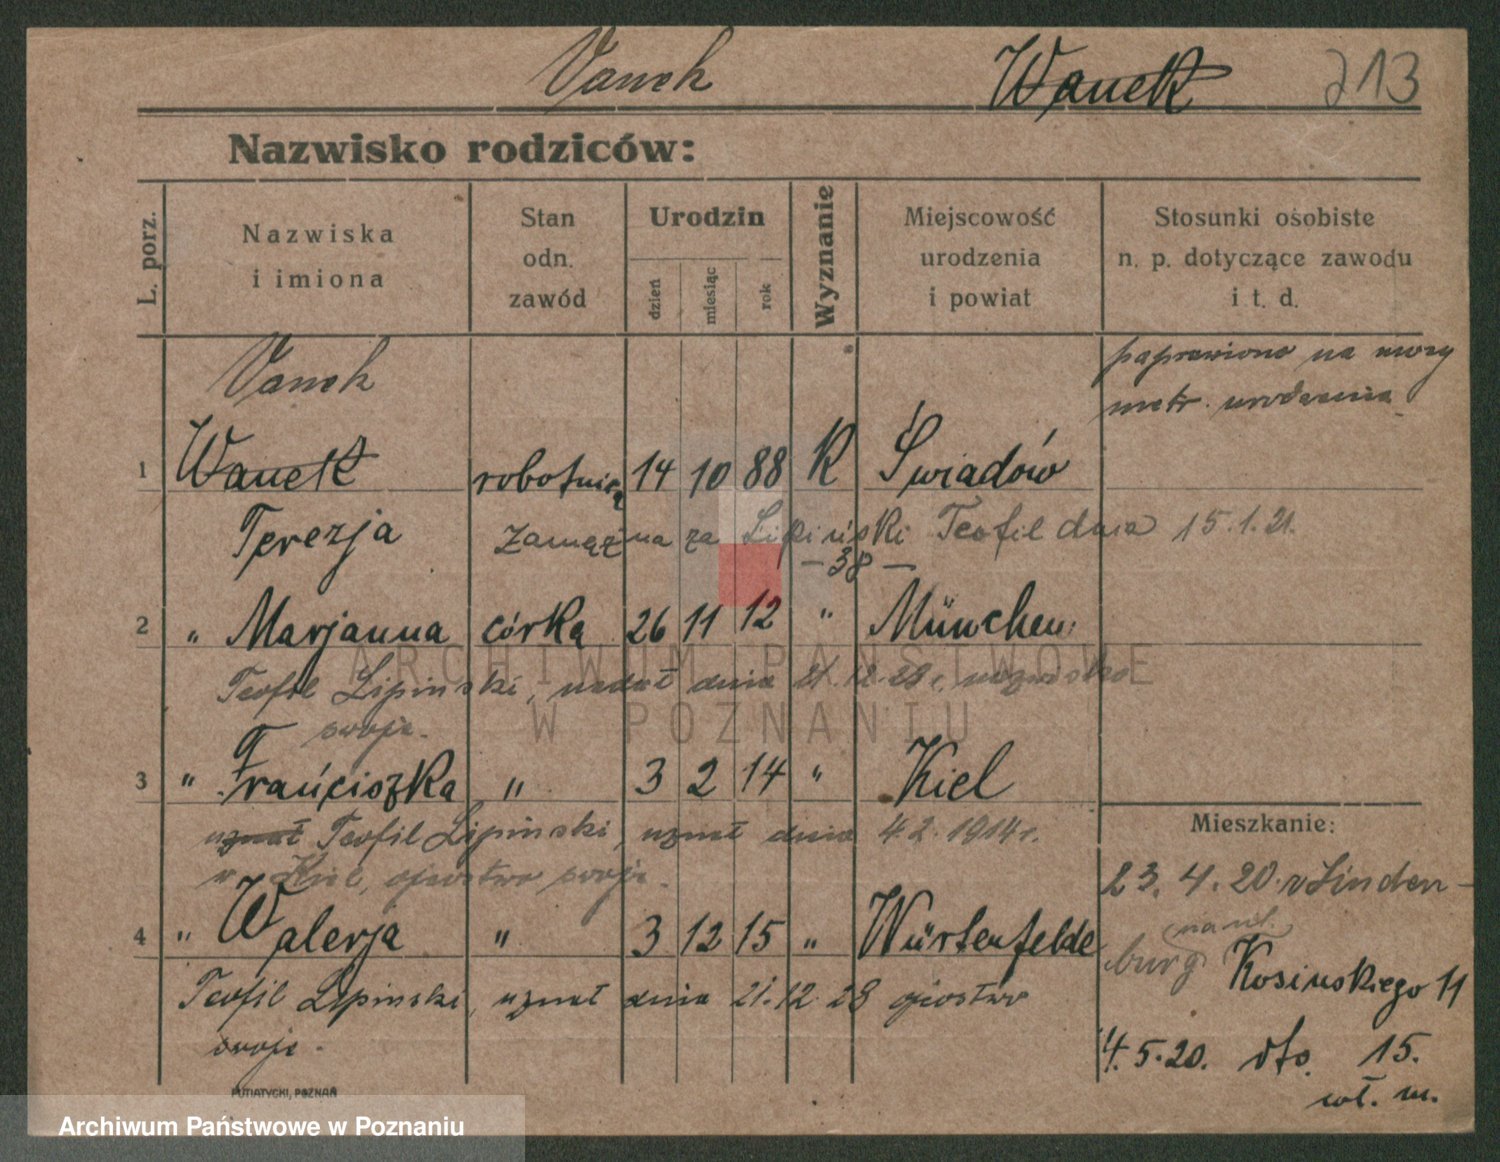 Vanek Wanek 213
Nazwisko rodziców:
L. porz.
Nazwiska i imiona
Stan odn. zawód
Urodzin
dzień miesiąc rok
Wyznanie
Miejscowość urodzenia i powiat
Stosunki osobiste n. p. dotyczące zawodu i t. d.
Vanek
poprawiono na mocy
metr. urodzenia
1 Wanek robotnica 14 10 88 K Świadów
Terezja zamężna za Lipiński Teofil dnia 15.1.21.
— 38 —
2 " Marjanna córka 26 11 12 " München
Teofil Lipiński, nadał dnia 21.12.28 r. nazwisko
swoje.
3 " Franciszka " 3 2 14 " Kiel
uznał Teofil Lipiński, uznał dnia 4.2.1914 r.
w Kiel, ojcostwo swoje.
4 " Walerja " 3 12 15 " Würtenfelde
Teofil Lipinski, uznał dnia 21.12 28 ojcostwo
swoje.
Mieszkanie:
23. 4. 20. v Linden-
burg
Kosinskiego 11
4.5.20. dto. 15.
wł. m.
PUTIATYCKI, POZNAŃ
ARCHIWUM PAŃSTWOWE
W POZNANIU
Archiwum Państwowe w Poznaniu